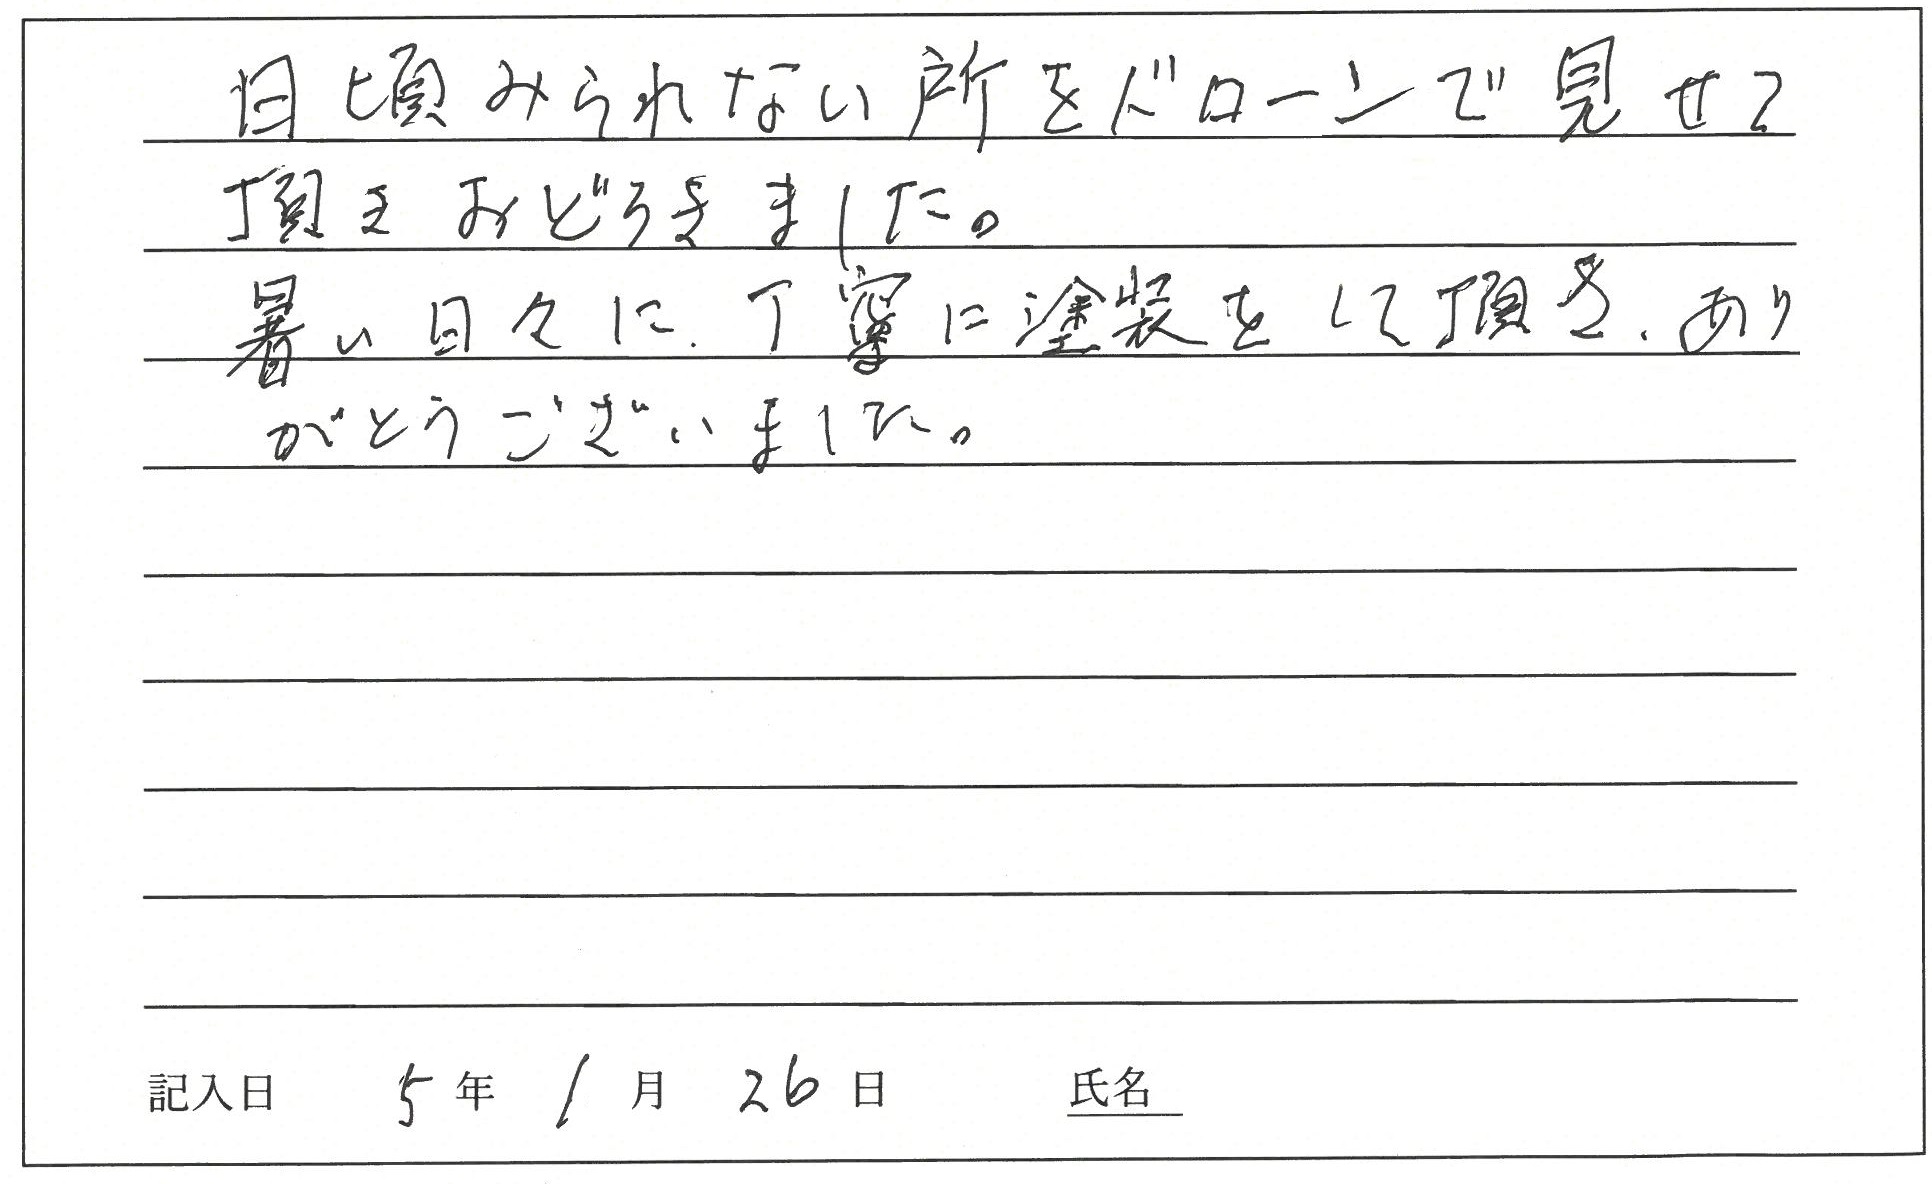 日頃みられない所をドローンで見せて
頂きおどろきました。
暑い日々に、丁寧に塗装をして頂き、あり
がとうございました。
記入日 5年 1月 26日 氏名